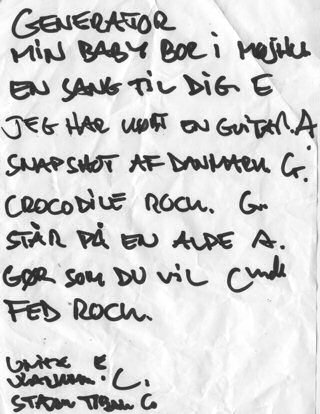 GENERATOR
MIN BABY BOR I
EN SANG TIL DIG E
JEG HAR KØBT EN GUITAR. A
SNAPSHOT AF DANMARK G.
CROCODILE ROCK. G.
STÅR PÅ EN ALPE A.
GØR SOM DU VIL C
FED ROCK.
E
C.
G